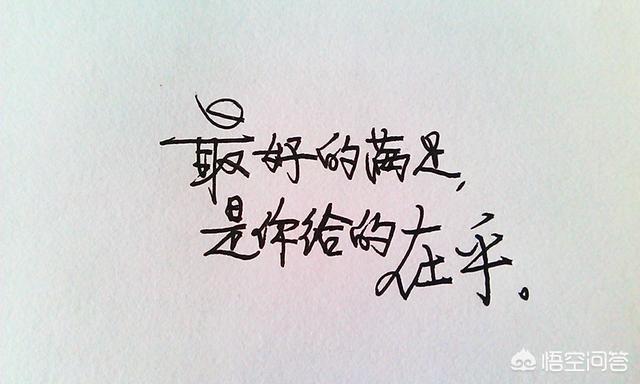 最好的满足,
是你给的在乎。
悟空问答